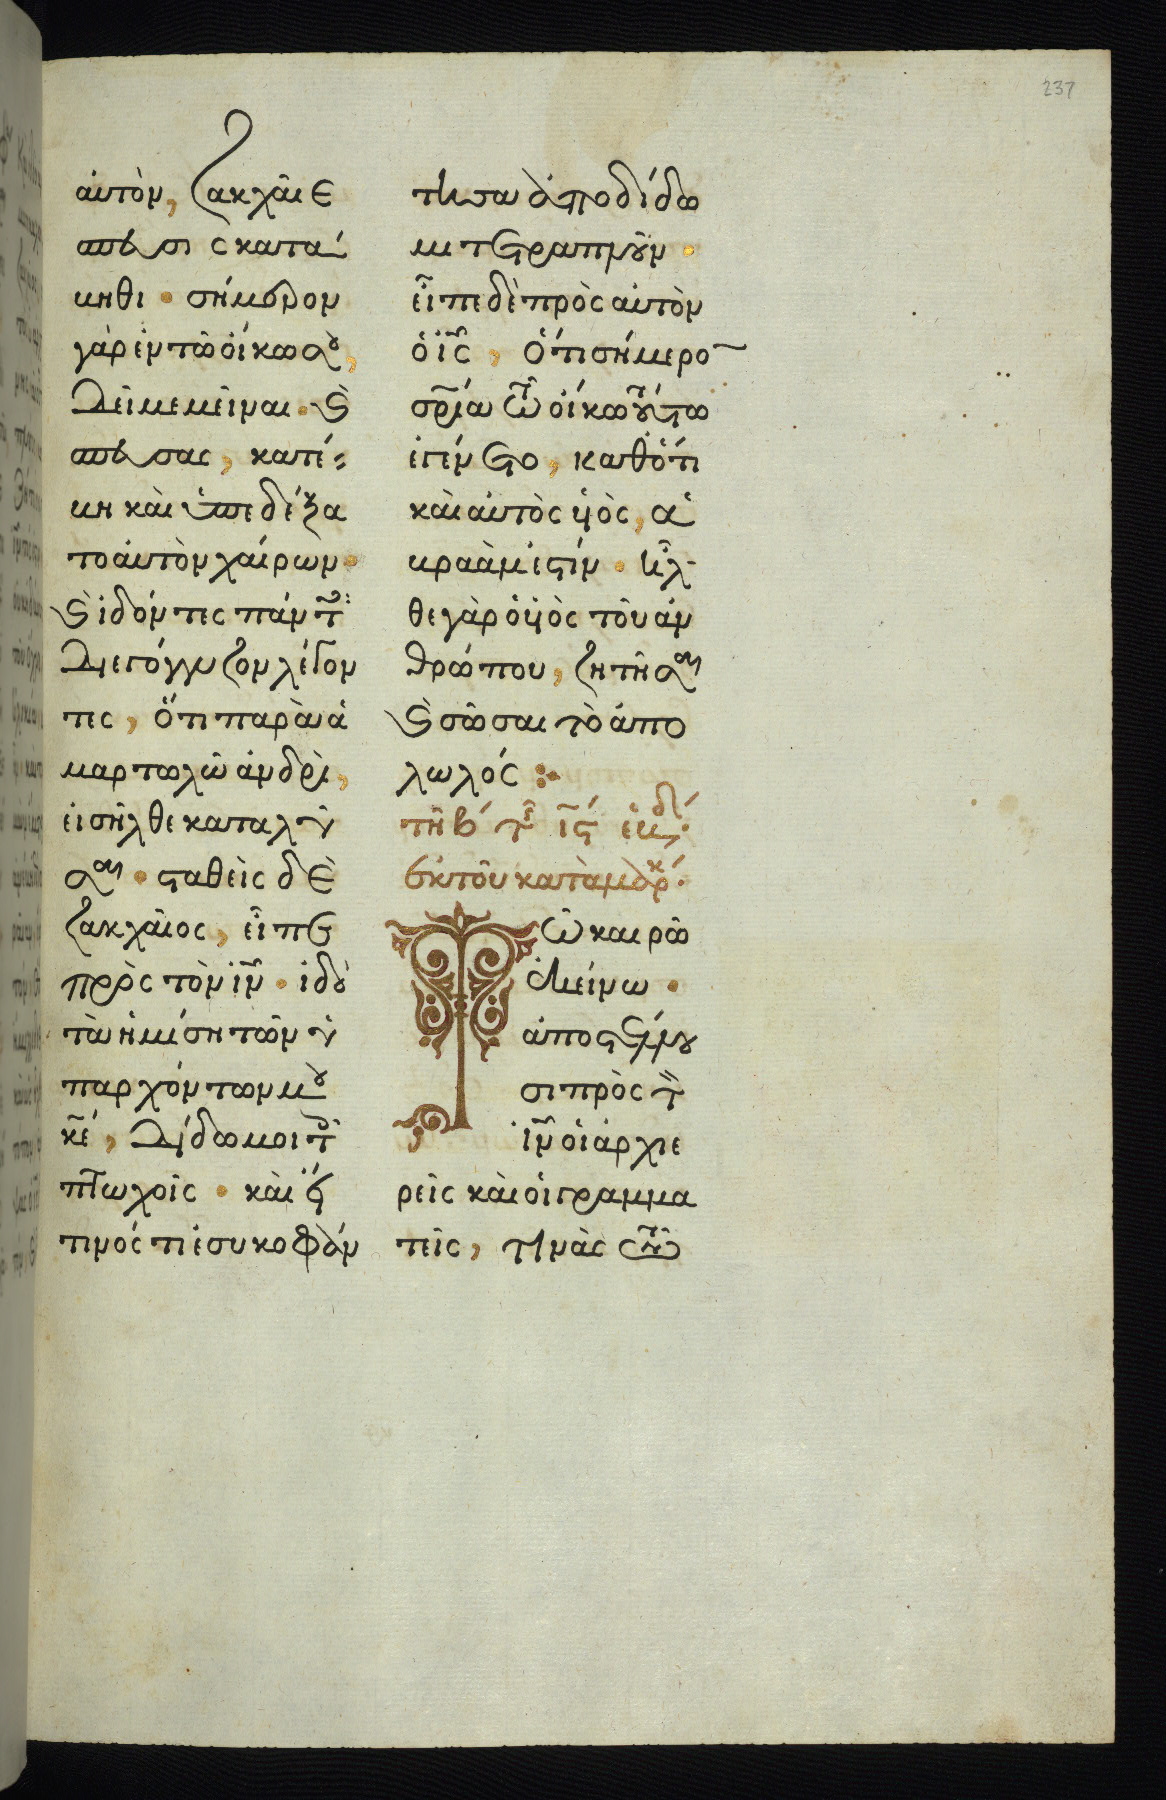 237
αὐτὸν, ζακχαῖε
σπεύσας κατά
βηθι · σήμερον
γὰρ ἐν τῶ οἴκω σου,
δεῖ με μεῖναι · καὶ
σπεύσας, κατέ
βη καὶ ὑπεδέξα
το αὐτὸν χαίρων ·
καὶ ἰδόντες πάντες
διεγόγγυζον λέγον
τες, ὅτι παρὰ ἁ
μαρτωλῶ ἀνδρὶ,
εἰσῆλθε καταλῦ
σαι · σταθεὶς δὲ
ζακχαῖος, εἶπε
πρὸς τὸν ἰν̅ · ἰδοὺ
τὰ ἡμίση τῶν ὑ
παρχόντων μου
κε̅, δίδωμι τοῖς
πτωχοῖς · καὶ εἴ
τινός τι ἐσυκοφάν
τησα ἀποδίδω
μι τετραπλοῦν ·
εἶπε δὲ πρὸς αὐτὸν
ὁ ις̅, ὅτι σήμερο̅
σρ̅ία τῶ οἴκω τούτω
ἐγένετο, καθότι
καὶ αὐτὸς υἱὸς, ἀ
βραάμ ἐστίν · ἦλ
θε γὰρ ὁ υἱὸς τοῦ ἀν
θρώπου, ζητῆσαι
καὶ σῶσαι τὸ ἀπο
λωλός :·
τῆ β´ τῆς ις̅´ ἑβδ´·
ἐκ τοῦ κατὰ μάρκ´·
Τῶ καιρῶ
ἐκείνω ·
ἀποστέλλου
σι πρὸς τὸν
ἰν̅ οἱ ἀρχιε
ρεῖς καὶ οἱ γραμμα
τεῖς, τινὰς τῶν